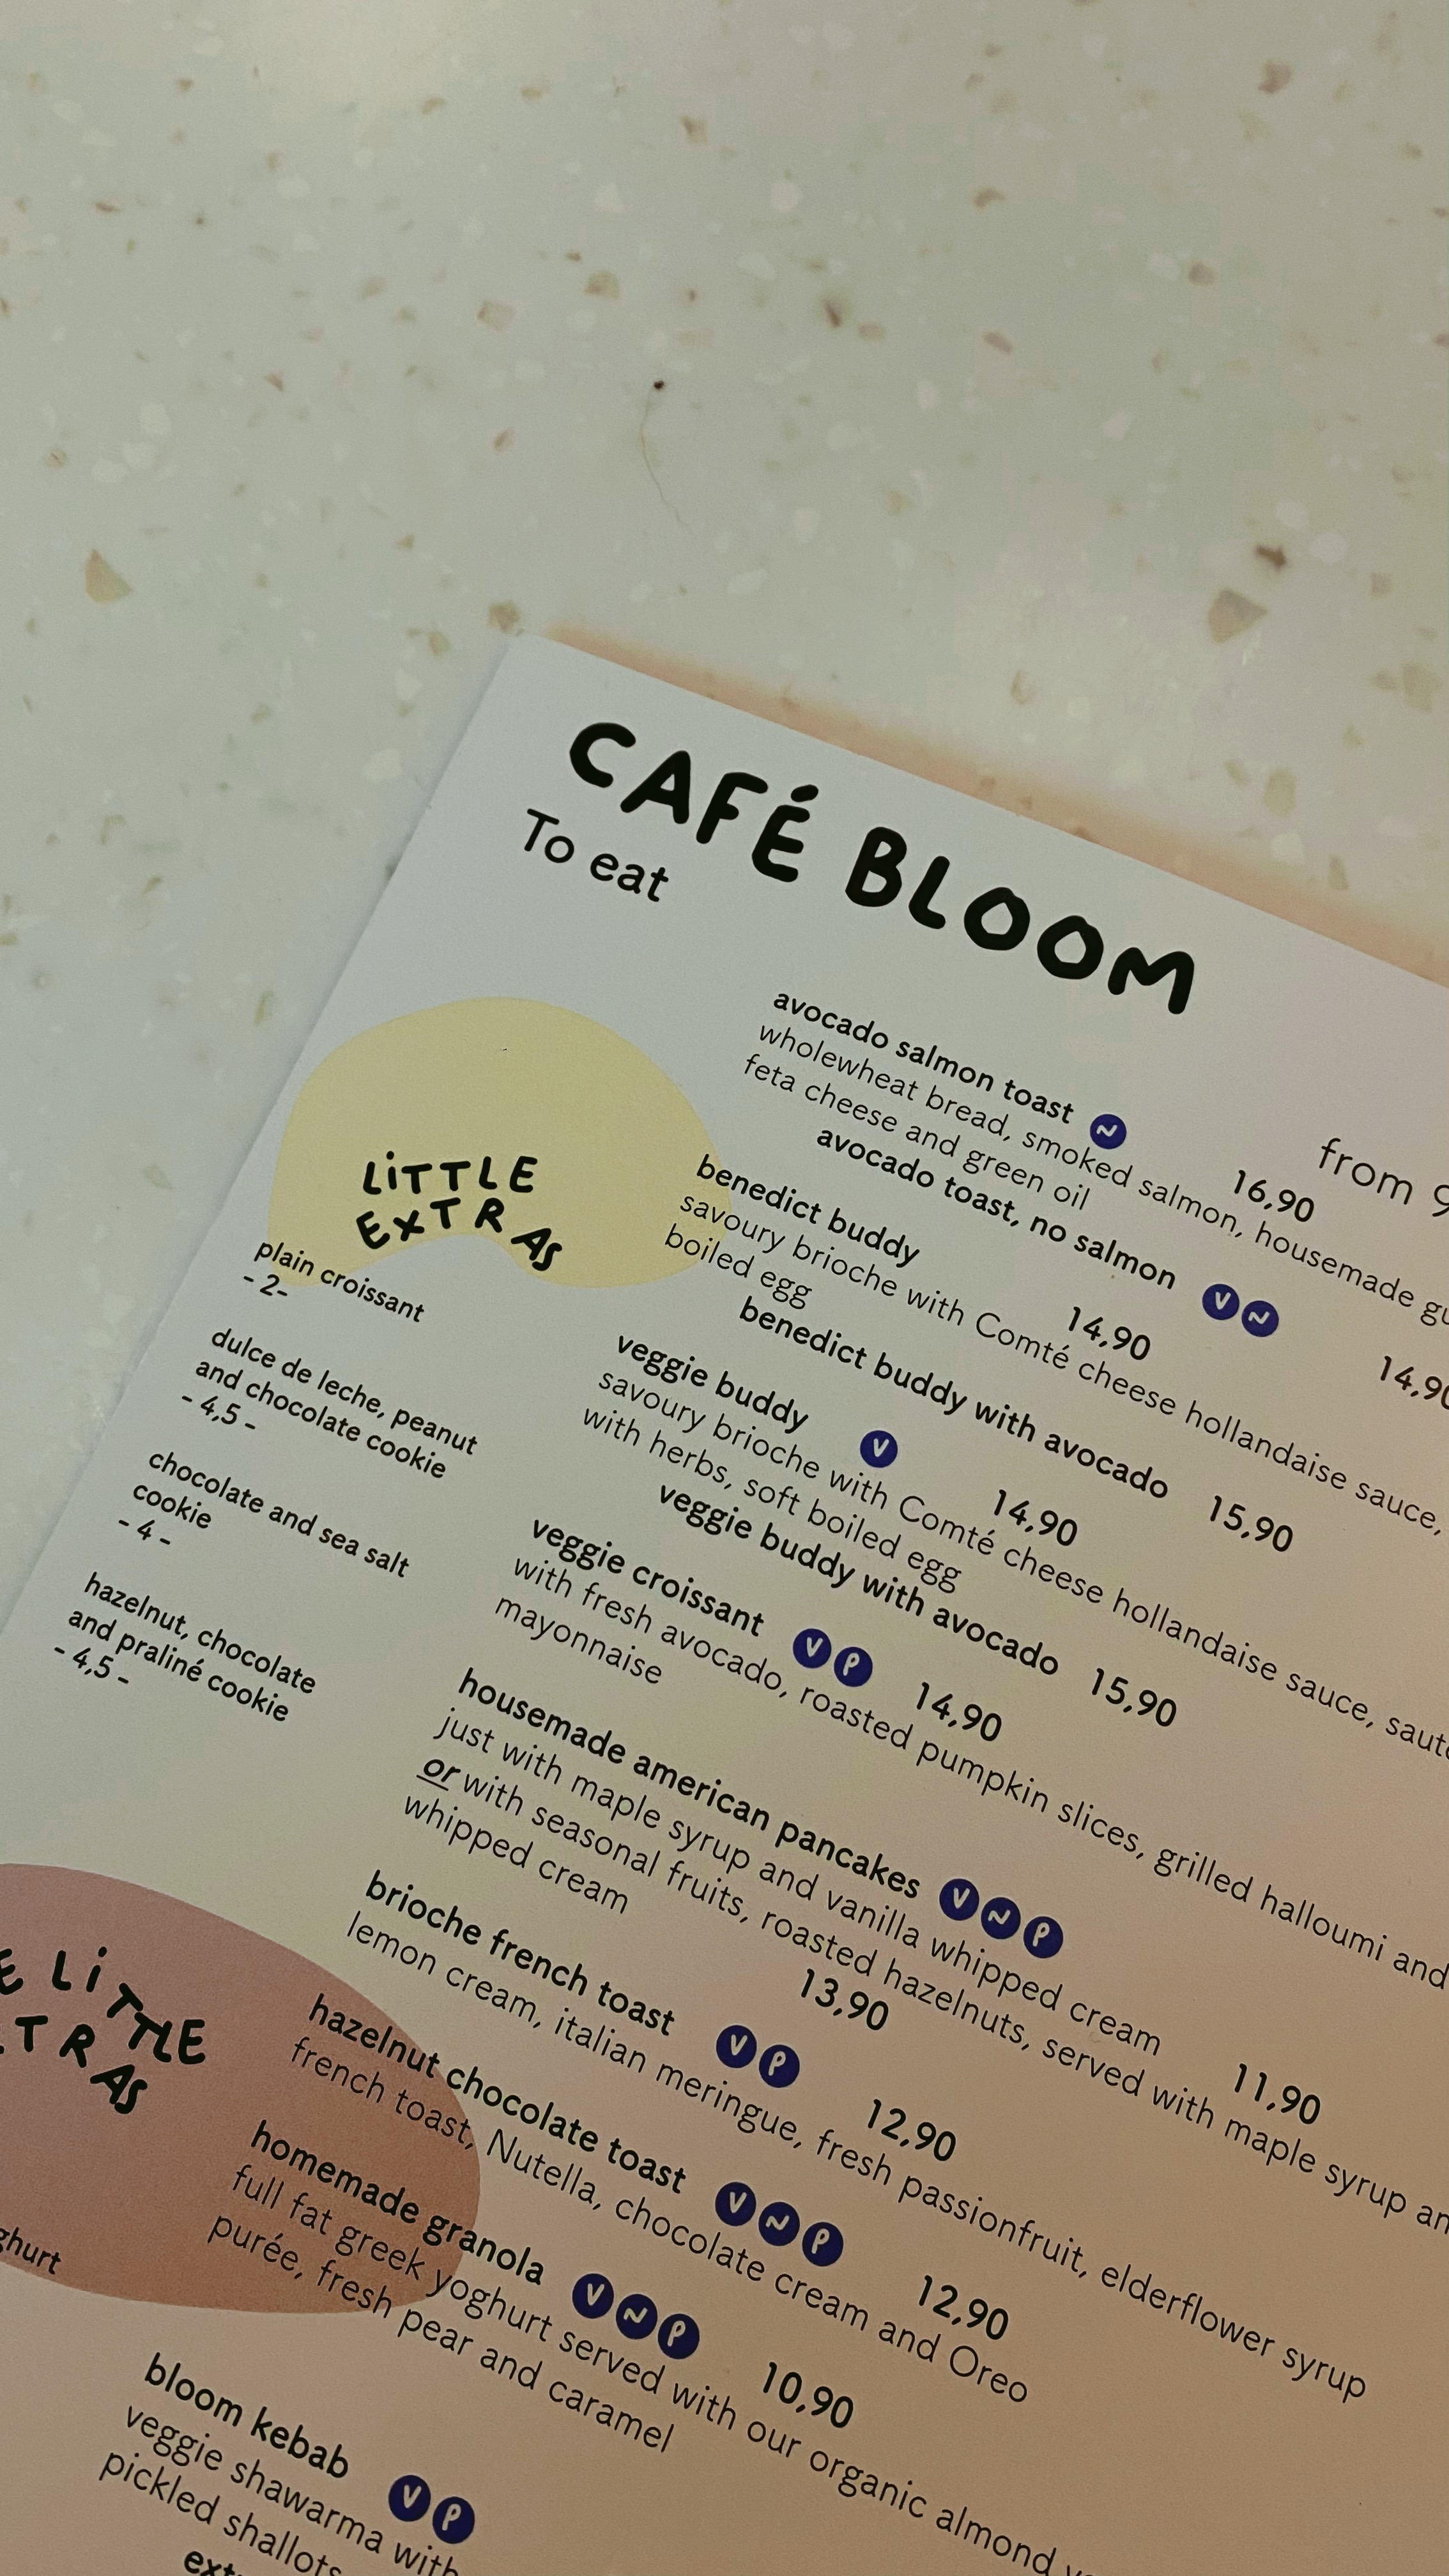 CAFÉ BLOOM
To eat
from
LiTTLE
EXTRAS
plain croissant
- 2-
dulce de leche, peanut
and chocolate cookie
- 4,5 -
chocolate and sea salt
cookie
- 4 -
hazelnut, chocolate
and praliné cookie
- 4,5 -
LiTTLE
ghurt
avocado salmon toast N 16,90
wholewheat bread, smoked salmon, housemade
feta cheese and green oil
avocado toast, no salmon V N 14,90
benedict buddy 14,90
savoury brioche with Comté cheese hollandaise sauce,
boiled egg
benedict buddy with avocado 15,90
veggie buddy V 14,90
savoury brioche with Comté cheese hollandaise sauce,
with herbs, soft boiled egg
veggie buddy with avocado 15,90
veggie croissant V P 14,90
with fresh avocado, roasted pumpkin slices, grilled halloumi and
mayonnaise
housemade american pancakes V N P
just with maple syrup and vanilla whipped cream 11,90
or with seasonal fruits, roasted hazelnuts, served with maple syrup
whipped cream 13,90
brioche french toast V P 12,90
lemon cream, italian meringue, fresh passionfruit, elderflower syrup
hazelnut chocolate toast V N P 12,90
french toast, Nutella, chocolate cream and Oreo
homemade granola V N P 10,90
full fat greek yoghurt served with our organic almond
purée, fresh pear and caramel
bloom kebab V P
veggie shawarma with
pickled shallots